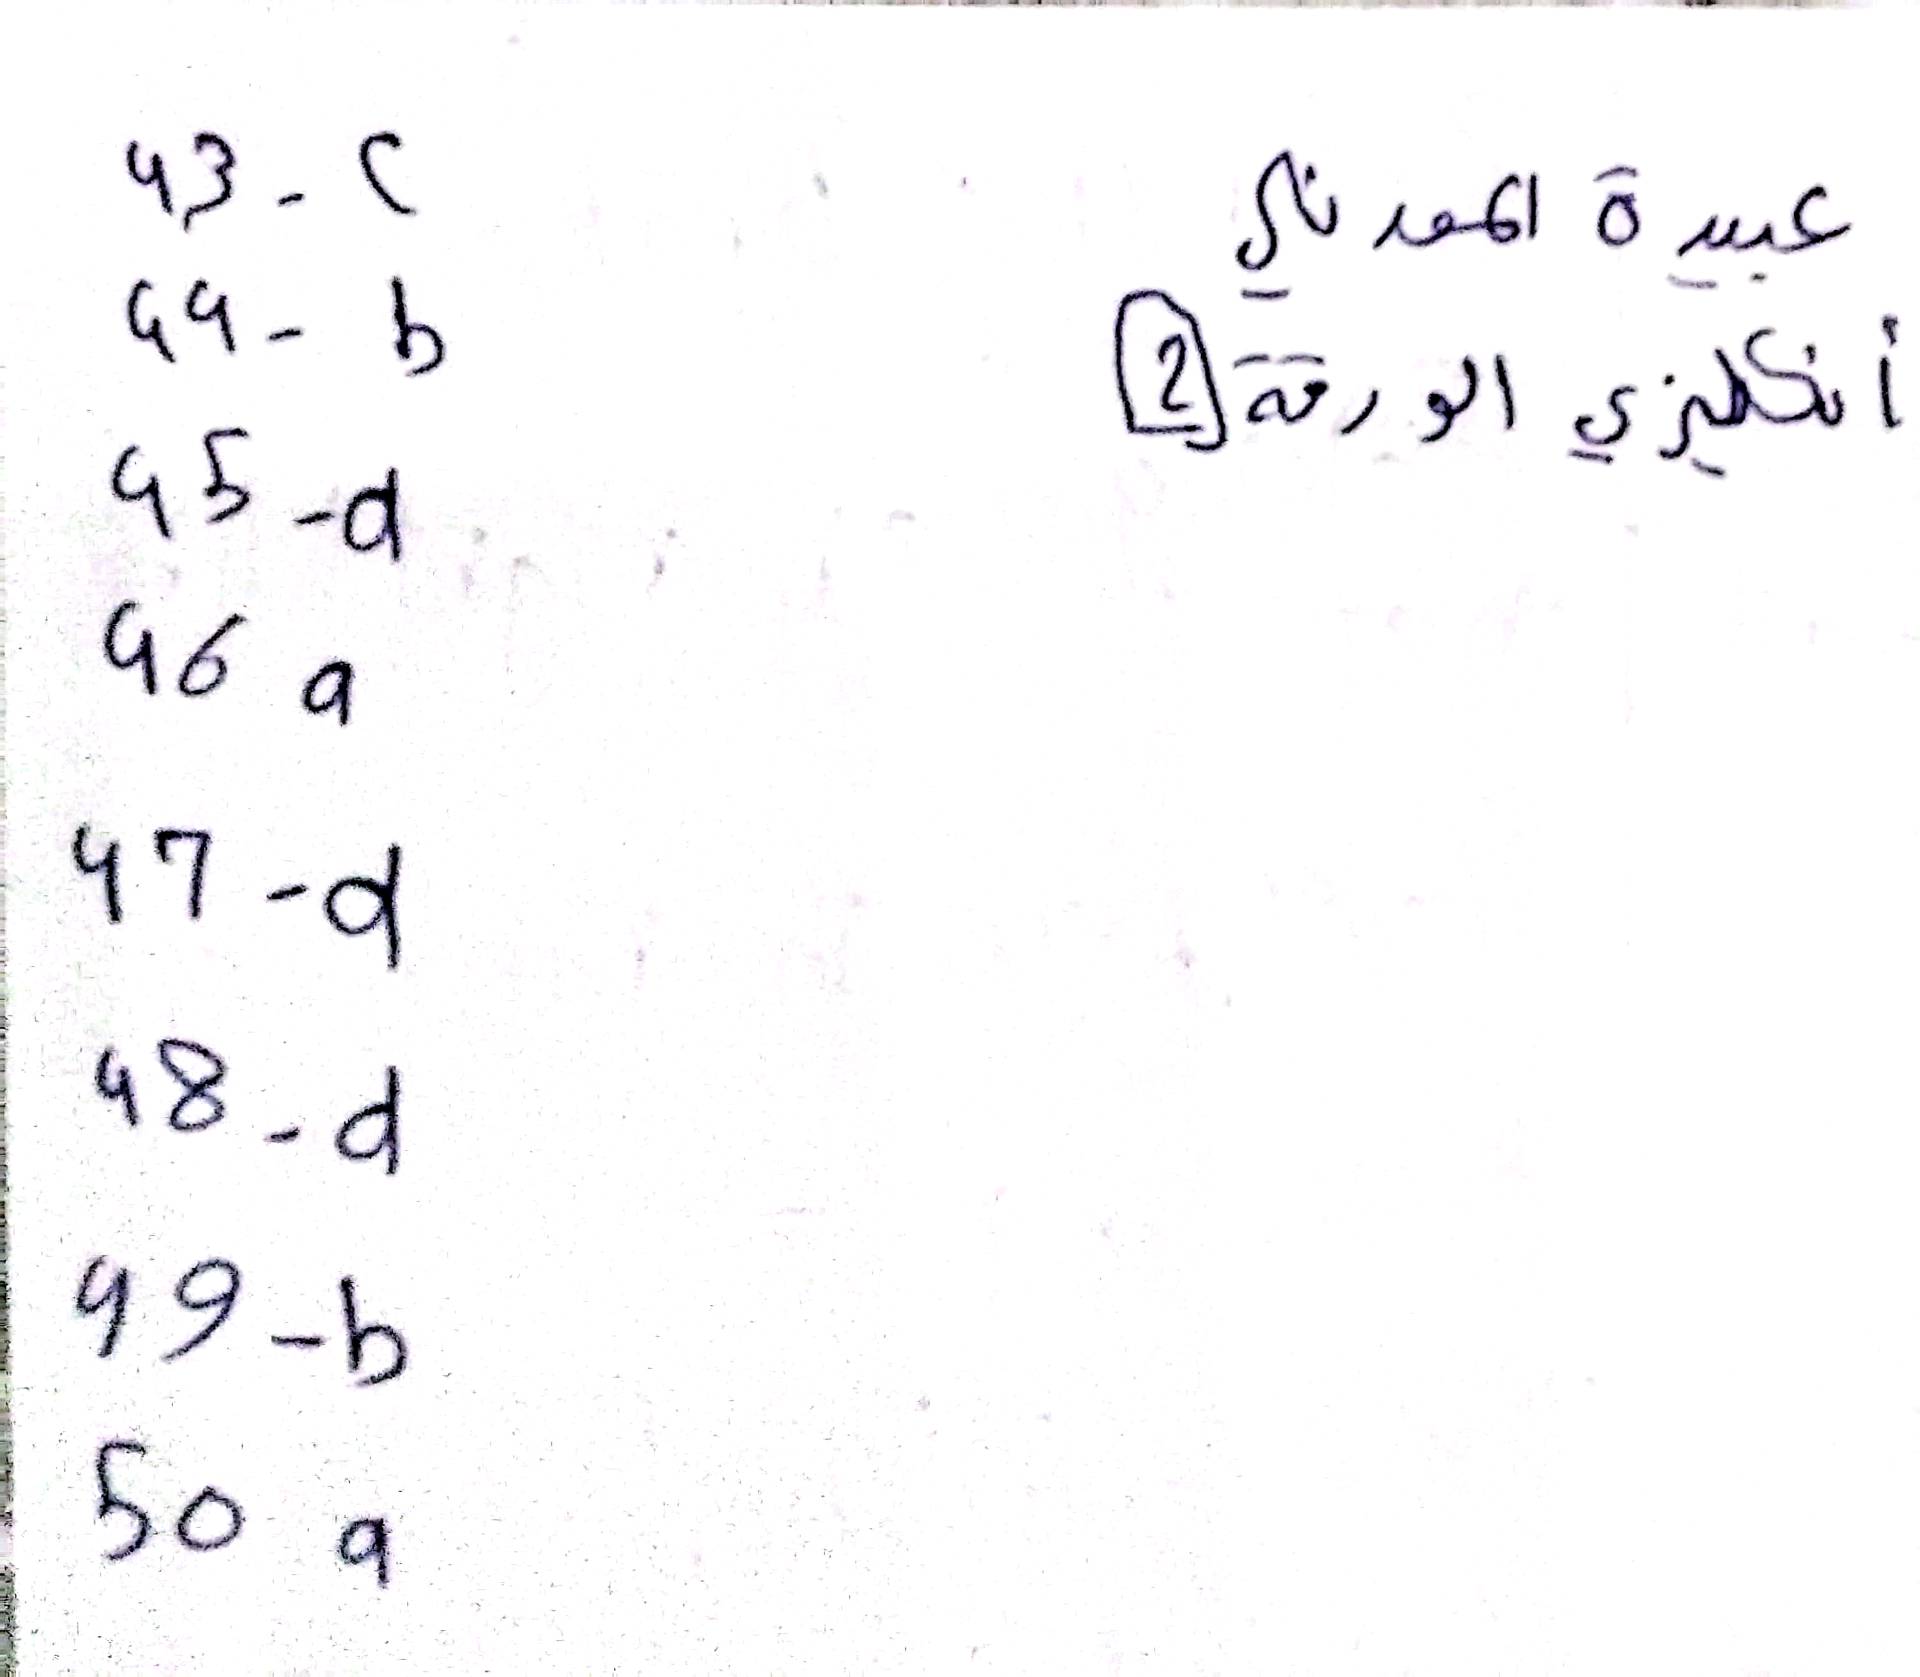 عبيدة المعدناي
أنكليزي الورقة 2
43 - c
44 - b
45 - d
46 a
47 - d
48 - d
49 - b
50 a